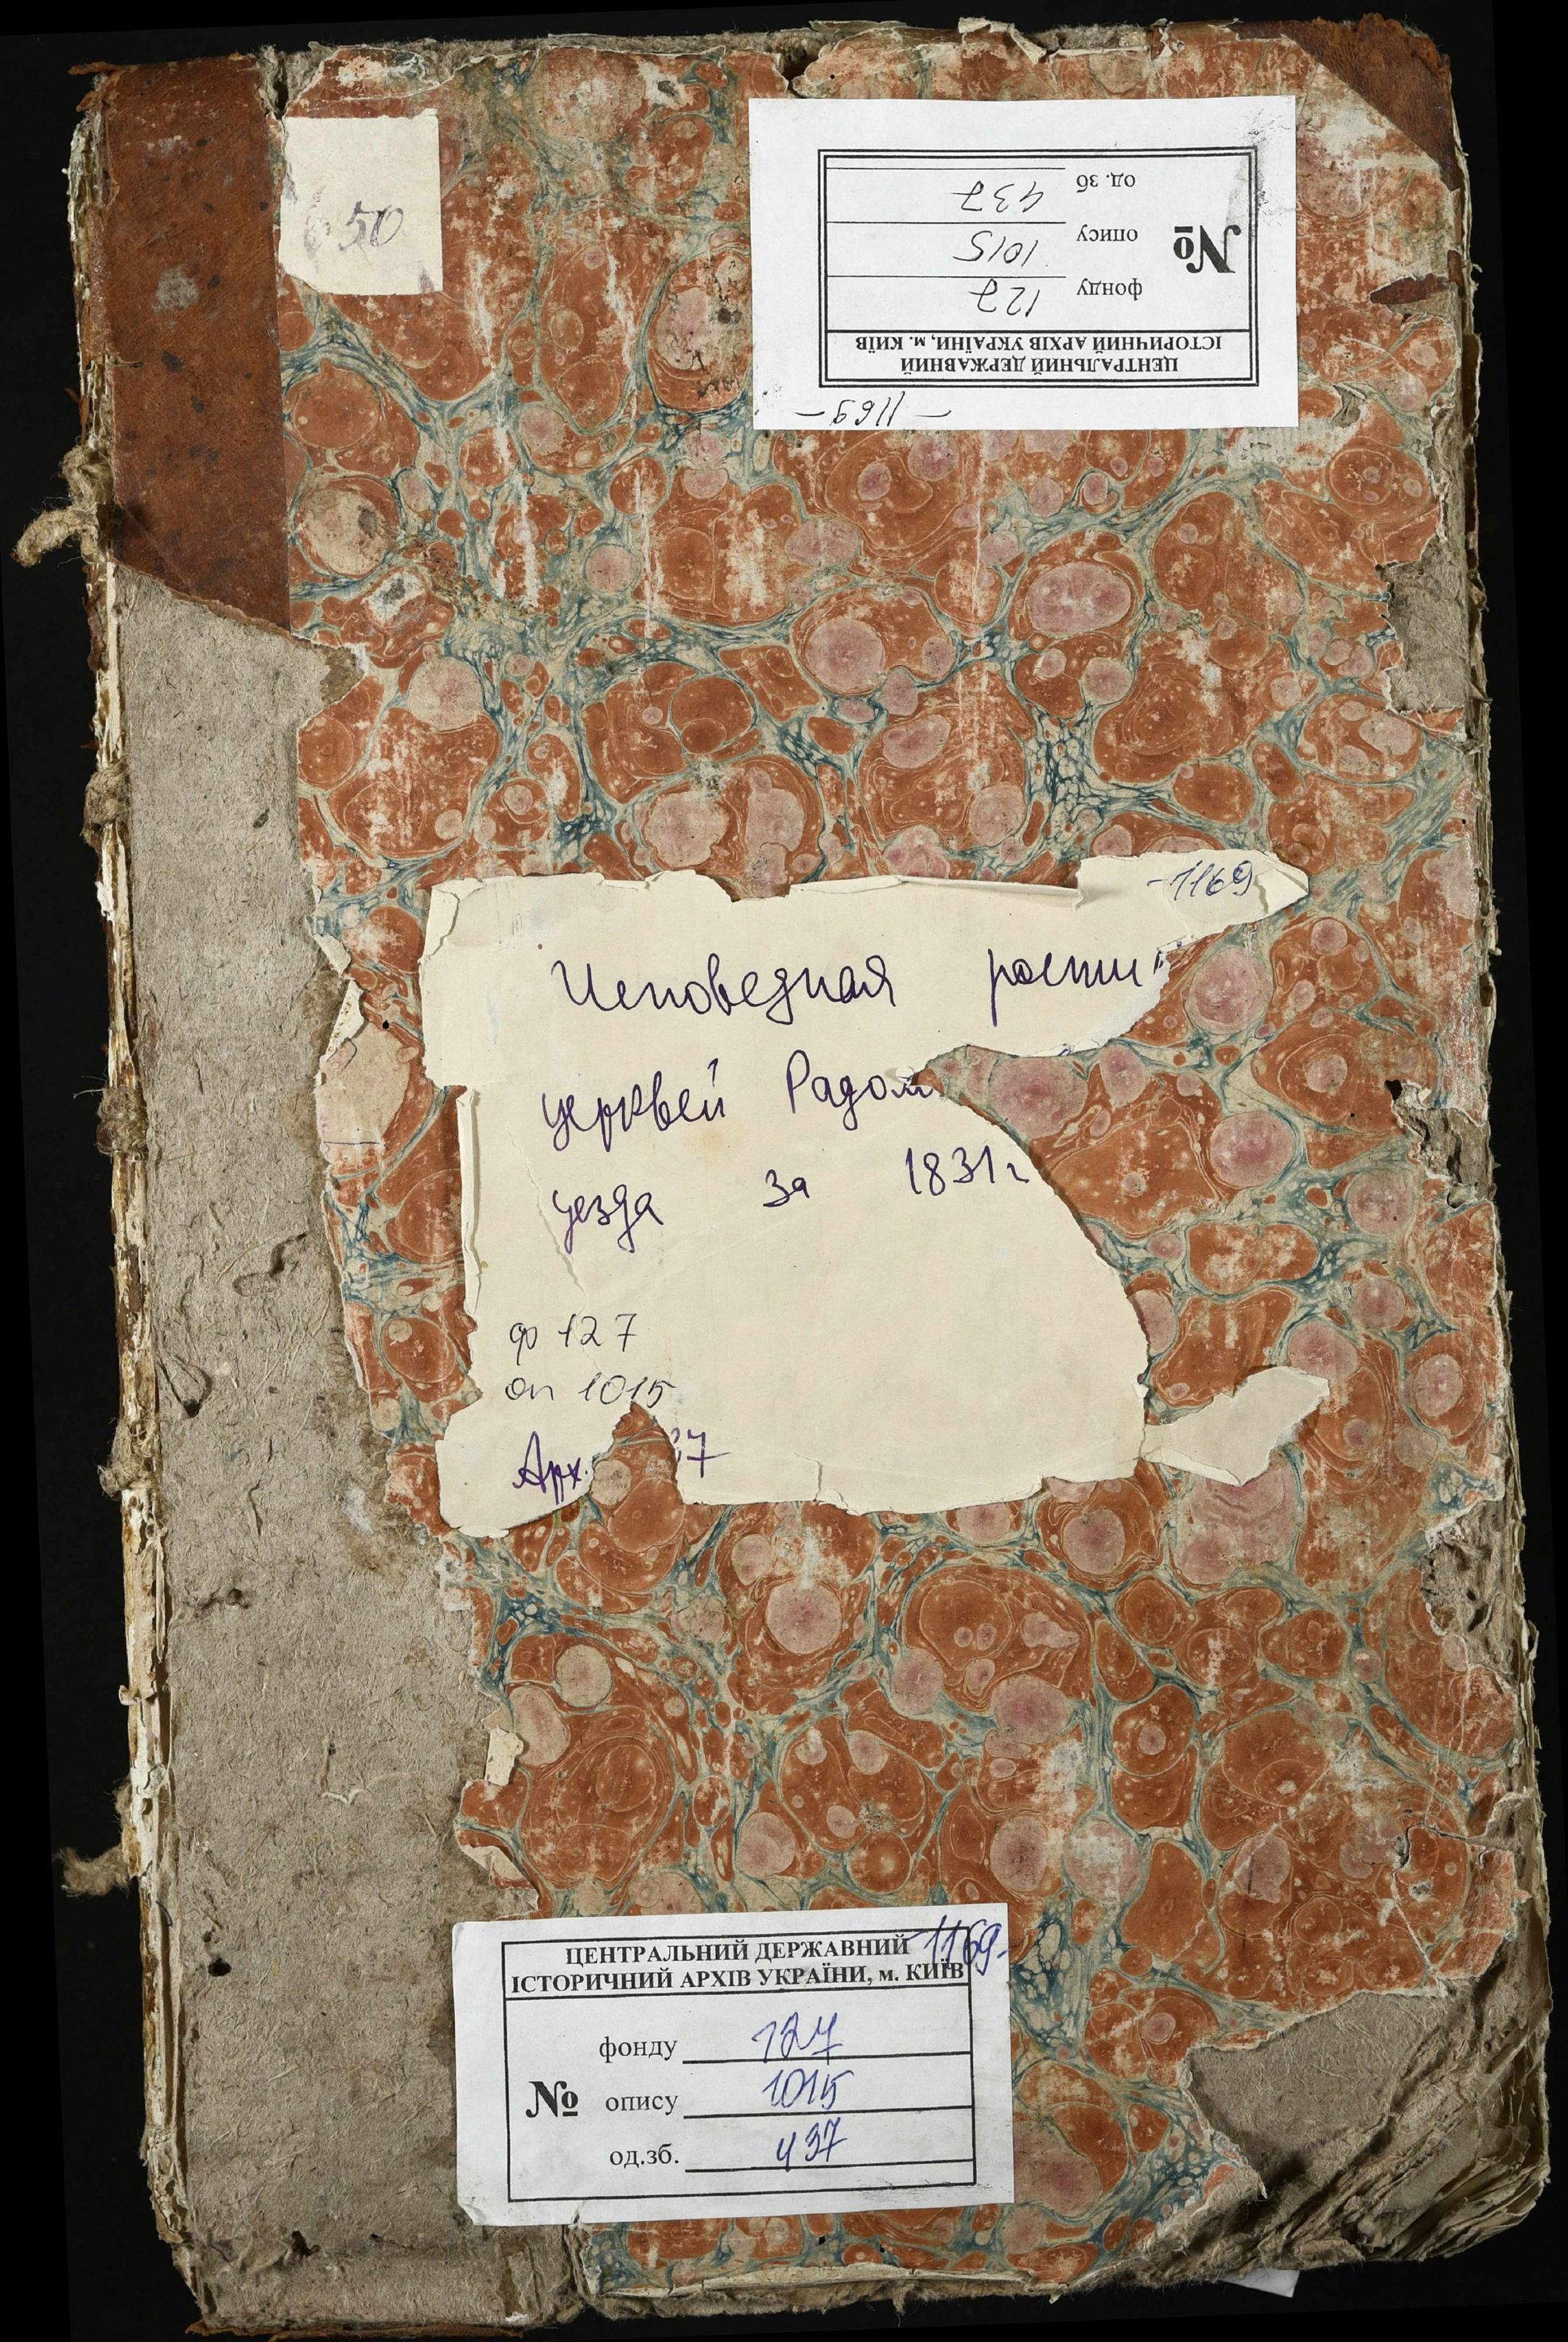 50
ЦЕНТРАЛЬНИЙ ДЕРЖАВНИЙ
ІСТОРИЧНИЙ АРХІВ УКРАЇНИ, м. КИЇВ
фонду 127
№ опису 1015
од. зб 437
- 1169 -
-1169
Исповедная роспи
церквей Радом
уезда за 1831г
ф 127
оп 1015
Арх. 37
1169-
ЦЕНТРАЛЬНИЙ ДЕРЖАВНИЙ
ІСТОРИЧНИЙ АРХІВ УКРАЇНИ, м. КИЇВ
фонду 127
№ опису 1015
од.зб. 437